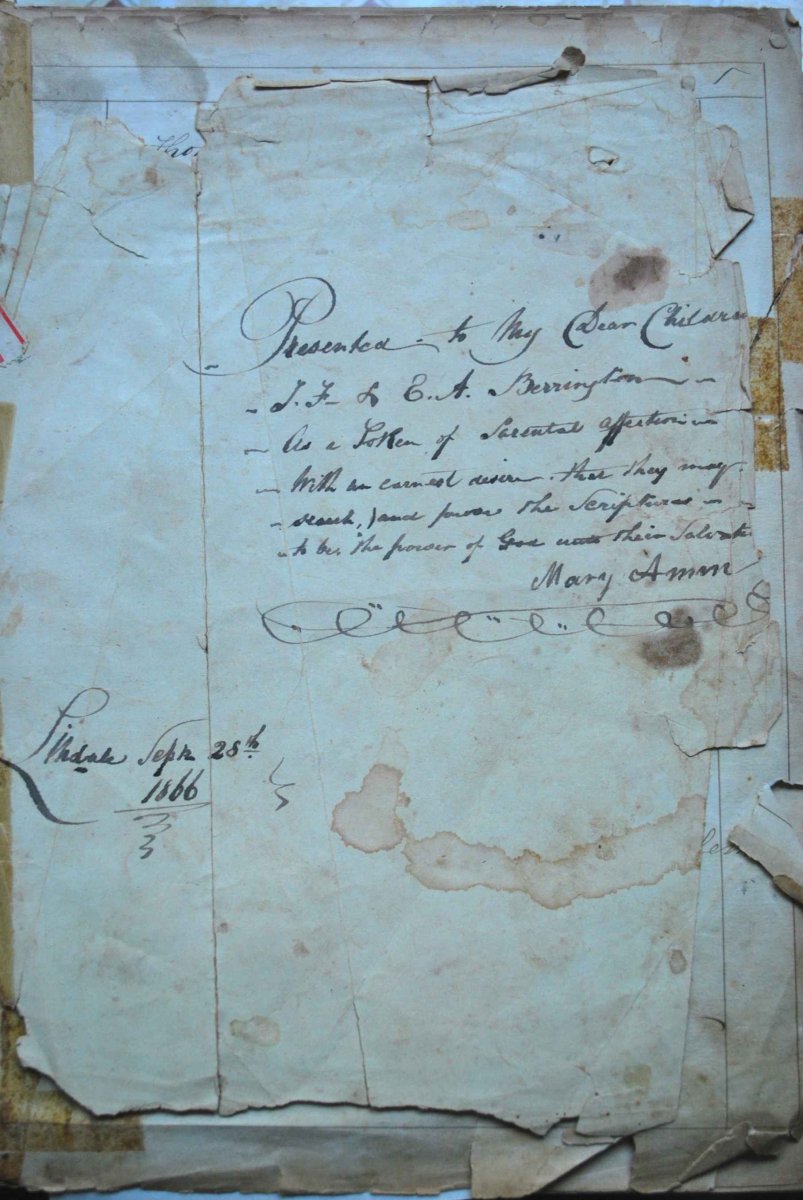 Tho
Presented to My Dear Childre
J. F. & E. A. Berrington
As a Token of Parental affection
With an earnest desire that they may
search, and the Scriptures
to be the power of God unto their Salvat
Mary Amm
Lindale Sept 28th
1866